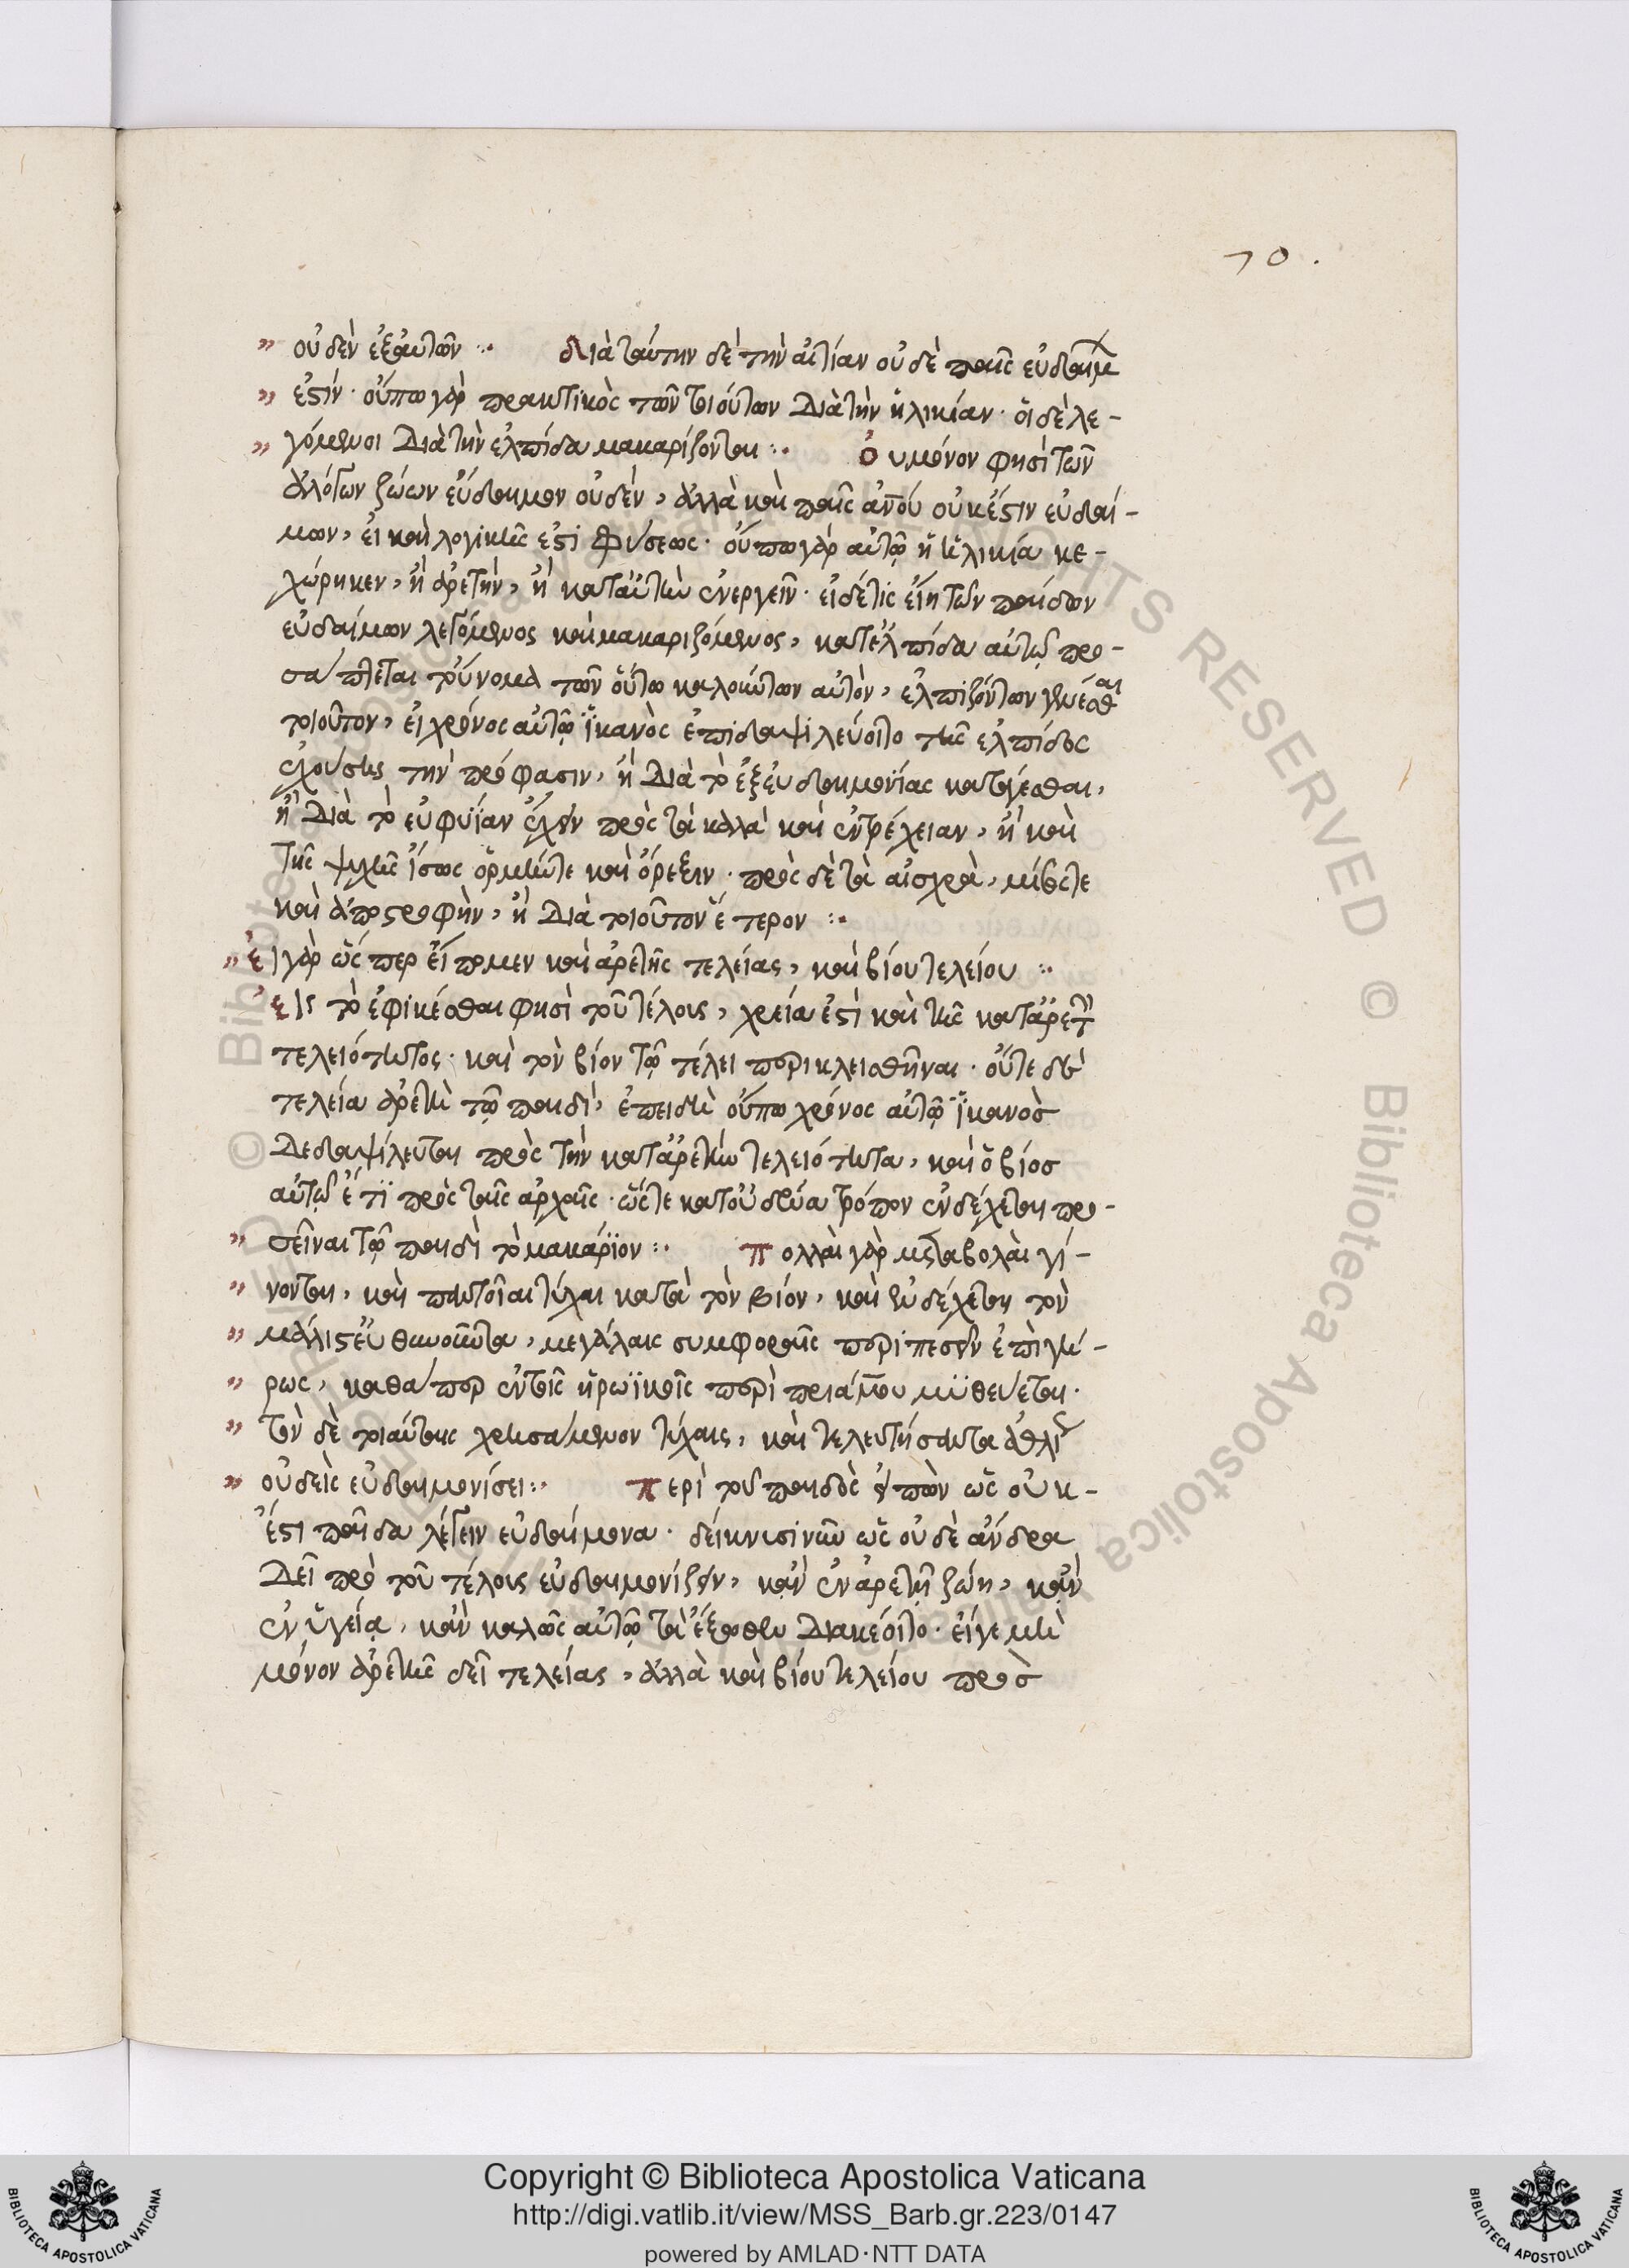 70.
" οὐδὲν ἐξ αὐτῶν :· διὰ ταύτην δὲ τὴν αἰτίαν οὐδὲ παῖς εὐδαίμ
" ἐστίν· οὔπω γὰρ πρακτικὸς τῶν τοιούτων διὰ τὴν ἡλικίαν· οἱ δὲ λε-
" γόμενοι διὰ τὴν ἐλπίδα μακαρίζονται :· Ὀυ μόνον φησὶ τῶν
ἀλόγων ζώων εὔδαιμον οὐδέν, ἀλλὰ καὶ παῖς ἀνου οὐκ ἔστιν εὐδαί-
μων, εἰ καὶ λογικῆς ἐστὶ φύσεως· οὔπω γὰρ αὐτῷ ἡ ἡλικία κε-
χώρηκεν, ἢ ἀρετὴν, ἢ κατ' αὐτὴν ἐνεργεῖν· εἰ δέ τις εἴη τῶν παίδων
εὐδαίμων λεγόμενος καὶ μακαριζόμενος, κατ' ἐλπίδα αὐτῷ προ-
σάπτεται τοὔνομα τῶν οὕτω καλούντων αὐτὸν, ἐλπιζόντων γενέσθαι
τοιοῦτον, εἰ χρόνος αὐτῷ ἱκανὸς ἐπιδαψιλεύοιτο τῆς ἐλπίδος
ἐχούσης τὴν πρόφασιν, ἢ διὰ τὸ ἐξ εὐδαιμονίας κατάγεσθαι,
ἢ διὰ τὸ εὐφυίαν ἔχειν πρὸς τὰ καλλὰ καὶ ἐντρέχειαν, ἢ καὶ
τῆς ψυχῆς ἴσως ὁρμήν τε καὶ ὄρεξιν· πρὸς δὲ τὰ αἰσχρὰ, μῖσός τε
καὶ ἀποστροφὴν, ἢ διὰ τοιοῦτον ἕτερον :·
" ἐι γὰρ ὥσπερ εἴπομεν καὶ ἀρετῆς τελείας, καὶ βίου τελείου :·
ἐις τὸ ἐφικέσθαι φησὶ τοῦ τέλους, χρεία ἐστὶ καὶ τῆς κατ' ἀρετ
τελειότητος· καὶ τὸν βίον τῷ τέλει περικλεισθῆναι· οὔτε δὲ
τελεία ἀρετὴ τῷ παιδὶ, ἐπειδὴ οὔπω χρόνος αὐτῷ ἱκανὸς
δεδαψίλευται πρὸς τὴν κατ' ἀρετὴν τελειότητα, καὶ ὁ βίος
αὐτῷ ἔτι πρὸς ταῖς ἀρχαῖς· ὥστε κατ' οὐδένα τρόπον ἐνδέχεται προ-
" σεῖναι τῷ παιδὶ τὸ μακάριον :· πολλαὶ γὰρ μεταβολαὶ γί-
" νονται, καὶ παντοῖαι τύχαι κατὰ τὸν βίον, καὶ ἐνδέχεται τὸν
" μάλιστ' εὐθηνοῦντα, μεγάλαις συμφοραῖς περιπεσεῖν ἐπὶ γή-
" ρως, καθάπερ ἐν τοῖς ἡρωϊκοῖς περὶ πριάμου μυθεύεται·
" τὸν δὲ τοιαύταις χρησάμενον τύχαις, καὶ τελευτήσαντα ἀθλί
" οὐδεὶς εὐδαιμονίσει :· περὶ τοῦ παιδὸς εἰπὼν ὡς οὐκ-
ἔστι παῖδα λέγειν εὐδαίμονα· δείκνυσι νῦν ὡς οὐδὲ ἄνδρα
δεῖ πρὸ τοῦ τέλους εὐδαιμονίζειν, κἂν ἐν ἀρετῇ ζώη, κἂν
ἐν ὑγεία, κἂν καλῶς αὐτῷ τὰ ἔξωθεν διακέοιτο· εἴγε μὴ
μόνον ἀρετῆς δεῖ τελείας, ἀλλὰ καὶ βίου τελείου πρὸς
Copyright © Biblioteca Apostolica Vaticana
http://digi.vatlib.it/view/MSS_Barb.gr.223/0147
powered by AMLAD·NTT DATA